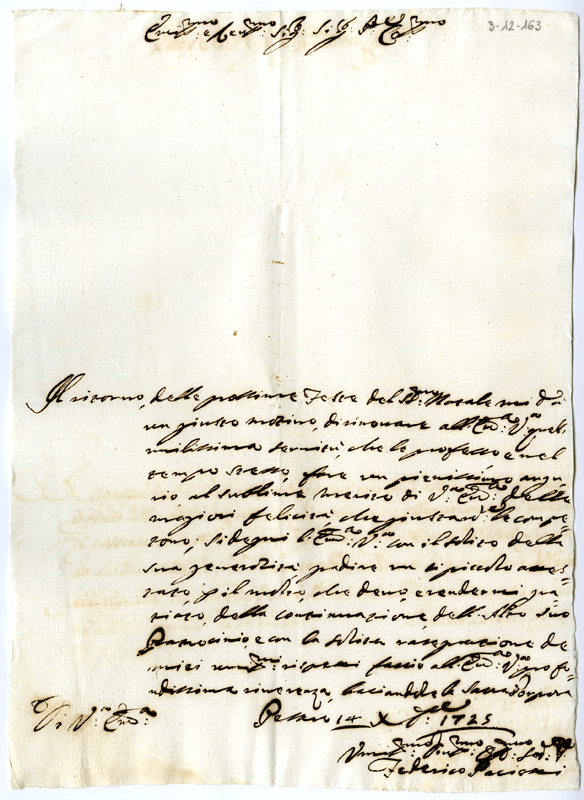 3-12-163
Em.mo e Rev.mo Sig. Sig. P.
Il ritorno, delle prossime Feste del SS.mo Natale mi dà
un giusto motivo, di rinovare all'Em.a V.a quell'
umilissima servitù, che le professo, e nel
tempo stesso, fare un pienissimo augu-
rio al sublime merito di V.a Em.a delle
magiori felicità, che giustam.te le compe-
tono, si degni l'Em.a V.a con il solito della
sua generosità gradire un sì piccolo attes-
tato, p il molto, che devo, e rendermi gra-
tiato, della continuazione dell'Alto suo
Patrocinio, e con la solita rasegnazione de
miei umi.mi rispetti faccio all'Em.a V.a profo-
ndissima riverenza, baciandole la Sacra Porpora
Di V.a Em.a
Pesaro 14 X.bre 1725
Um.mo Dev.mo
Federico